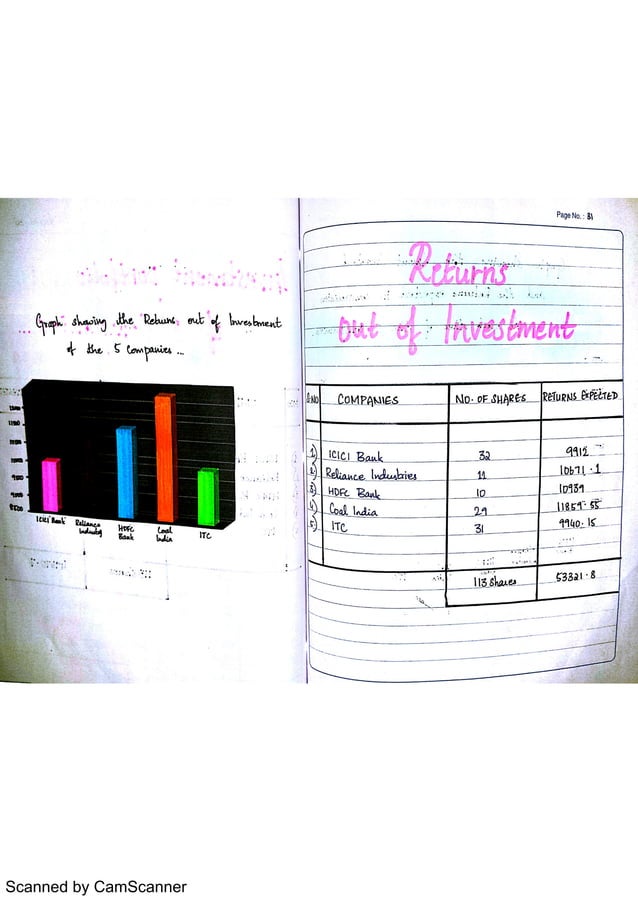 Graph showing the Returns out of Investment
of the 5 Companies ...
ICICI Bank
Reliance Industry
HDFC Bank
Coal India
ITC
Page No. : 31
Returns
out of Investment
S.NO COMPANIES NO. OF SHARES RETURNS EXPECTED
1) ICICI Bank 32 9912
2) Reliance Industries 11 10671.1
3) HDFC Bank 10 10939
4) Coal India 29 11859.55
5) ITC 31 9940.15
113 Shares 53321.8
Scanned by CamScanner